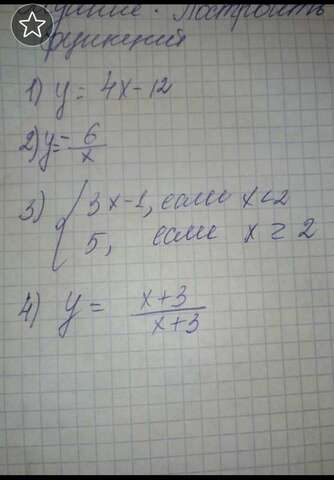 Построить
функций
1) y = 4x - 12
2) y = - 6/x
3) { 3x - 1, если x < 2
5, если x ≥ 2
4) y = x + 3 / x + 3